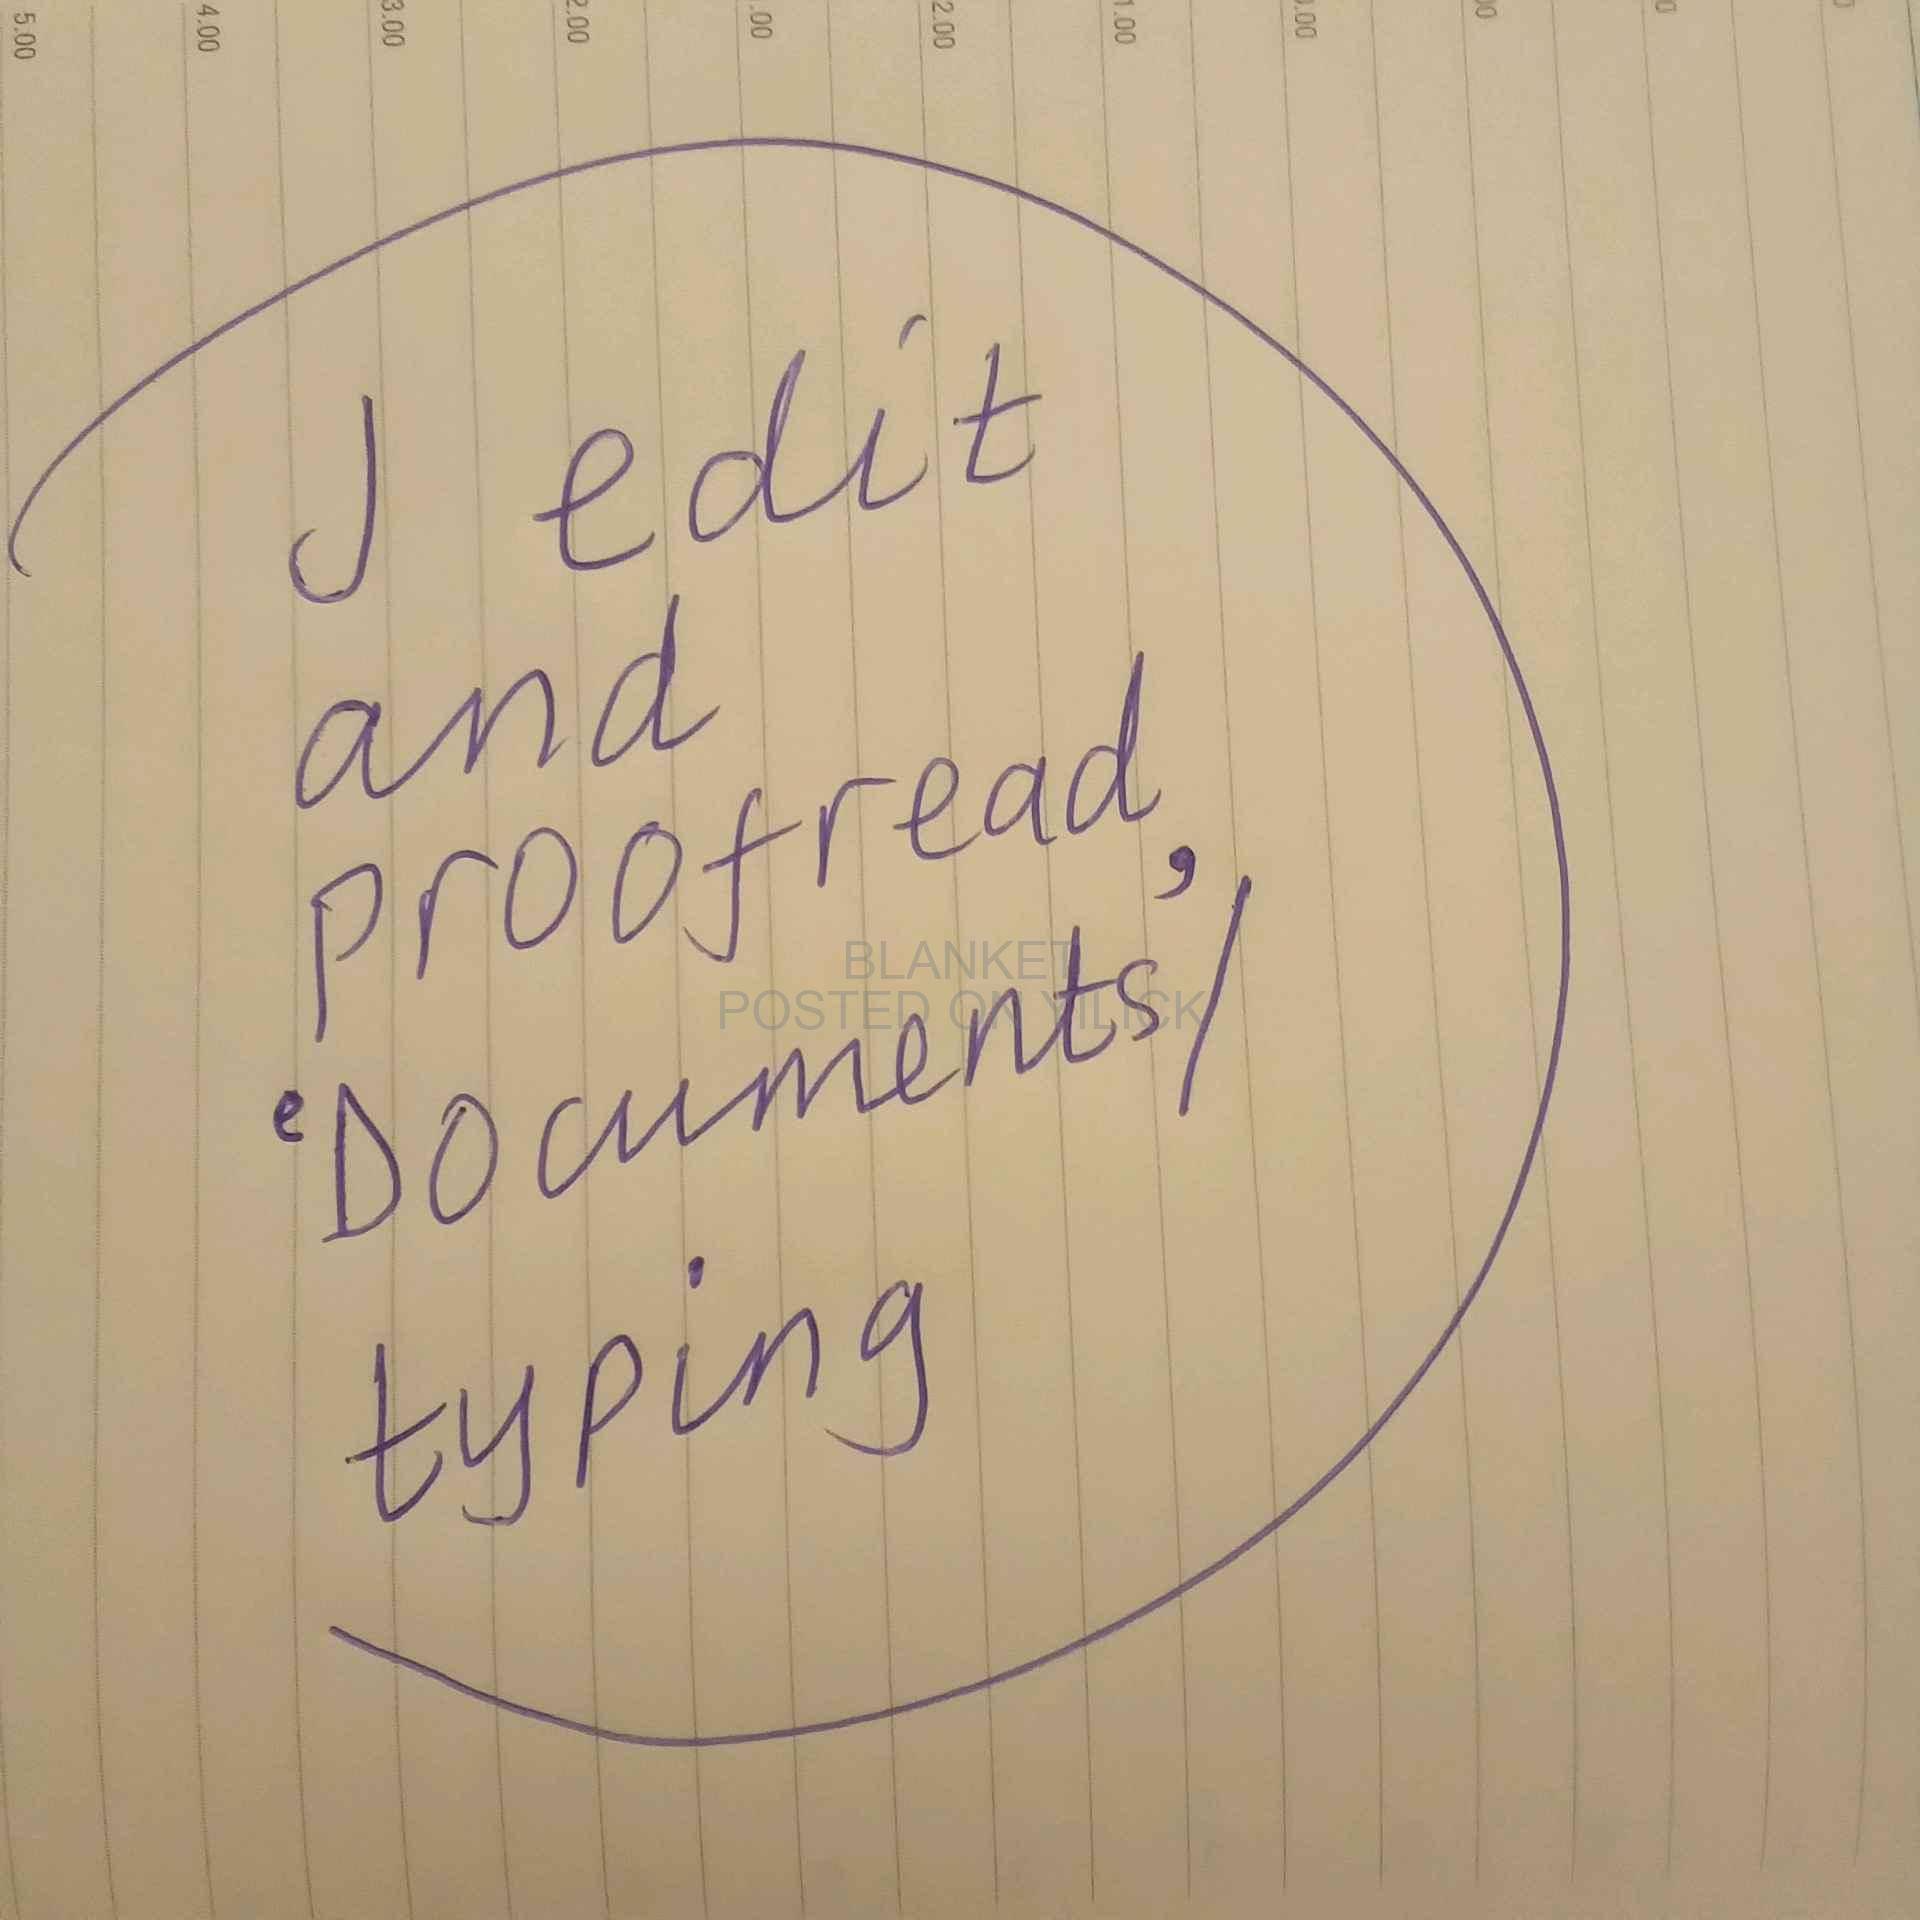 5.00
4.00
3.00
2.00
1.00
I edit
and
proofread,
eDocuments/
typing
BLANKET
POSTED ON YILICK